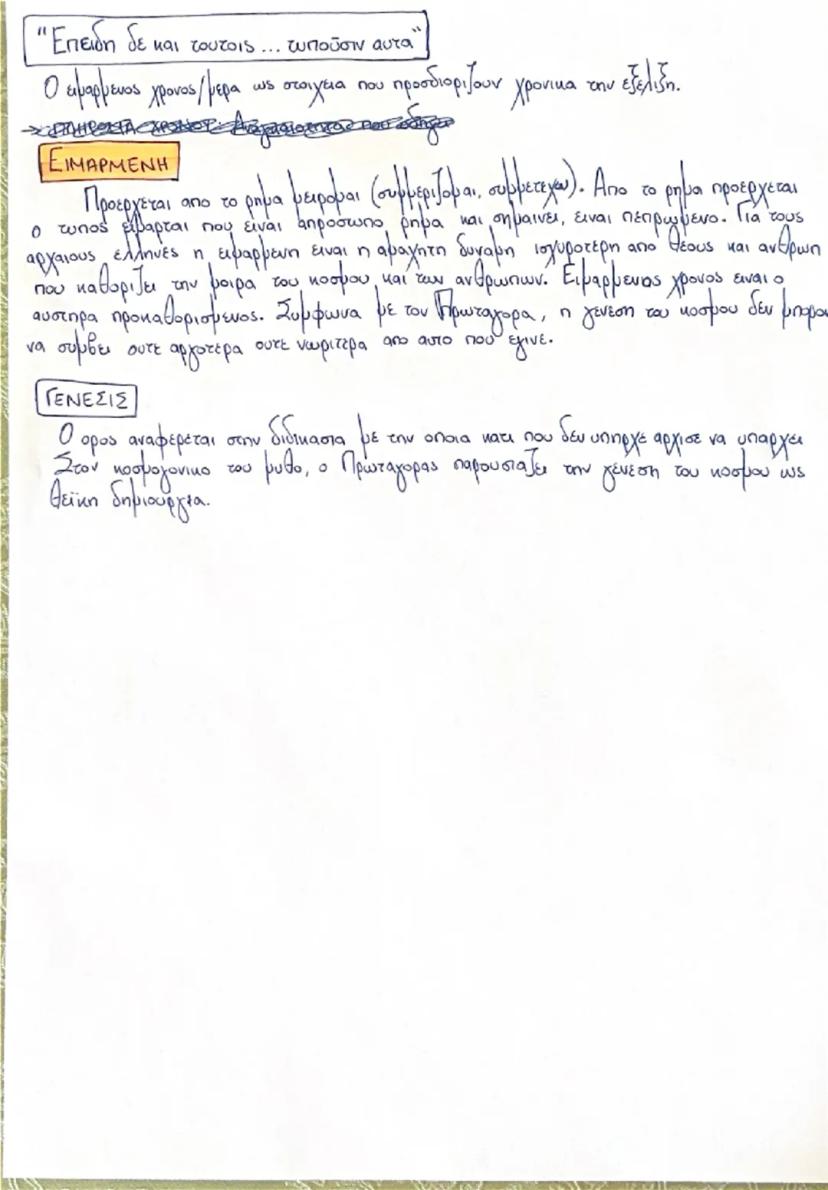 "Επειδη δε και τουτοις ... τυπούσιν αυτα"
Ο ειμαρμενος χρονος/μερα ως στοιχεια που προσδιοριζουν χρονικα την εξελιξη.
ΕΙΜΑΡΜΕΝΗ
Προερχεται απο το ρημα μειρομαι (συμμεριζομαι, συμμετεχω). Απο το ρημα προερχεται
ο τυπος ειμαρται που ειναι απροσωπο ρημα και σημαινει, ειναι πεπρωμενο. Για τους
αρχαιους ελληνες η ειμαρμενη ειναι η αμαχητη δυναμη ισχυροτερη απο θεους και ανθρωπ
που καθοριζει την μοιρα του κοσμου και των ανθρωπων. Ειμαρμενος χρονος ειναι ο
αυστηρα προκαθορισμενος. Συμφωνα με τον Πρωταγορα, η γενεση του κοσμου δεν μπορου
να συμβει ουτε αργοτερα ουτε νωριτερα απο αυτο που εγινε.
ΓΕΝΕΣΙΣ
Ο ορος αναφερεται στην διδικασια με την οποια κατι που δεν υπηρχε αρχισε να υπαρχει
Στον κοσμογονικο του μυθο, ο Πρωταγορας παρουσιαζει την γενεση του κοσμου ως
θεϊκη δημιουργια.